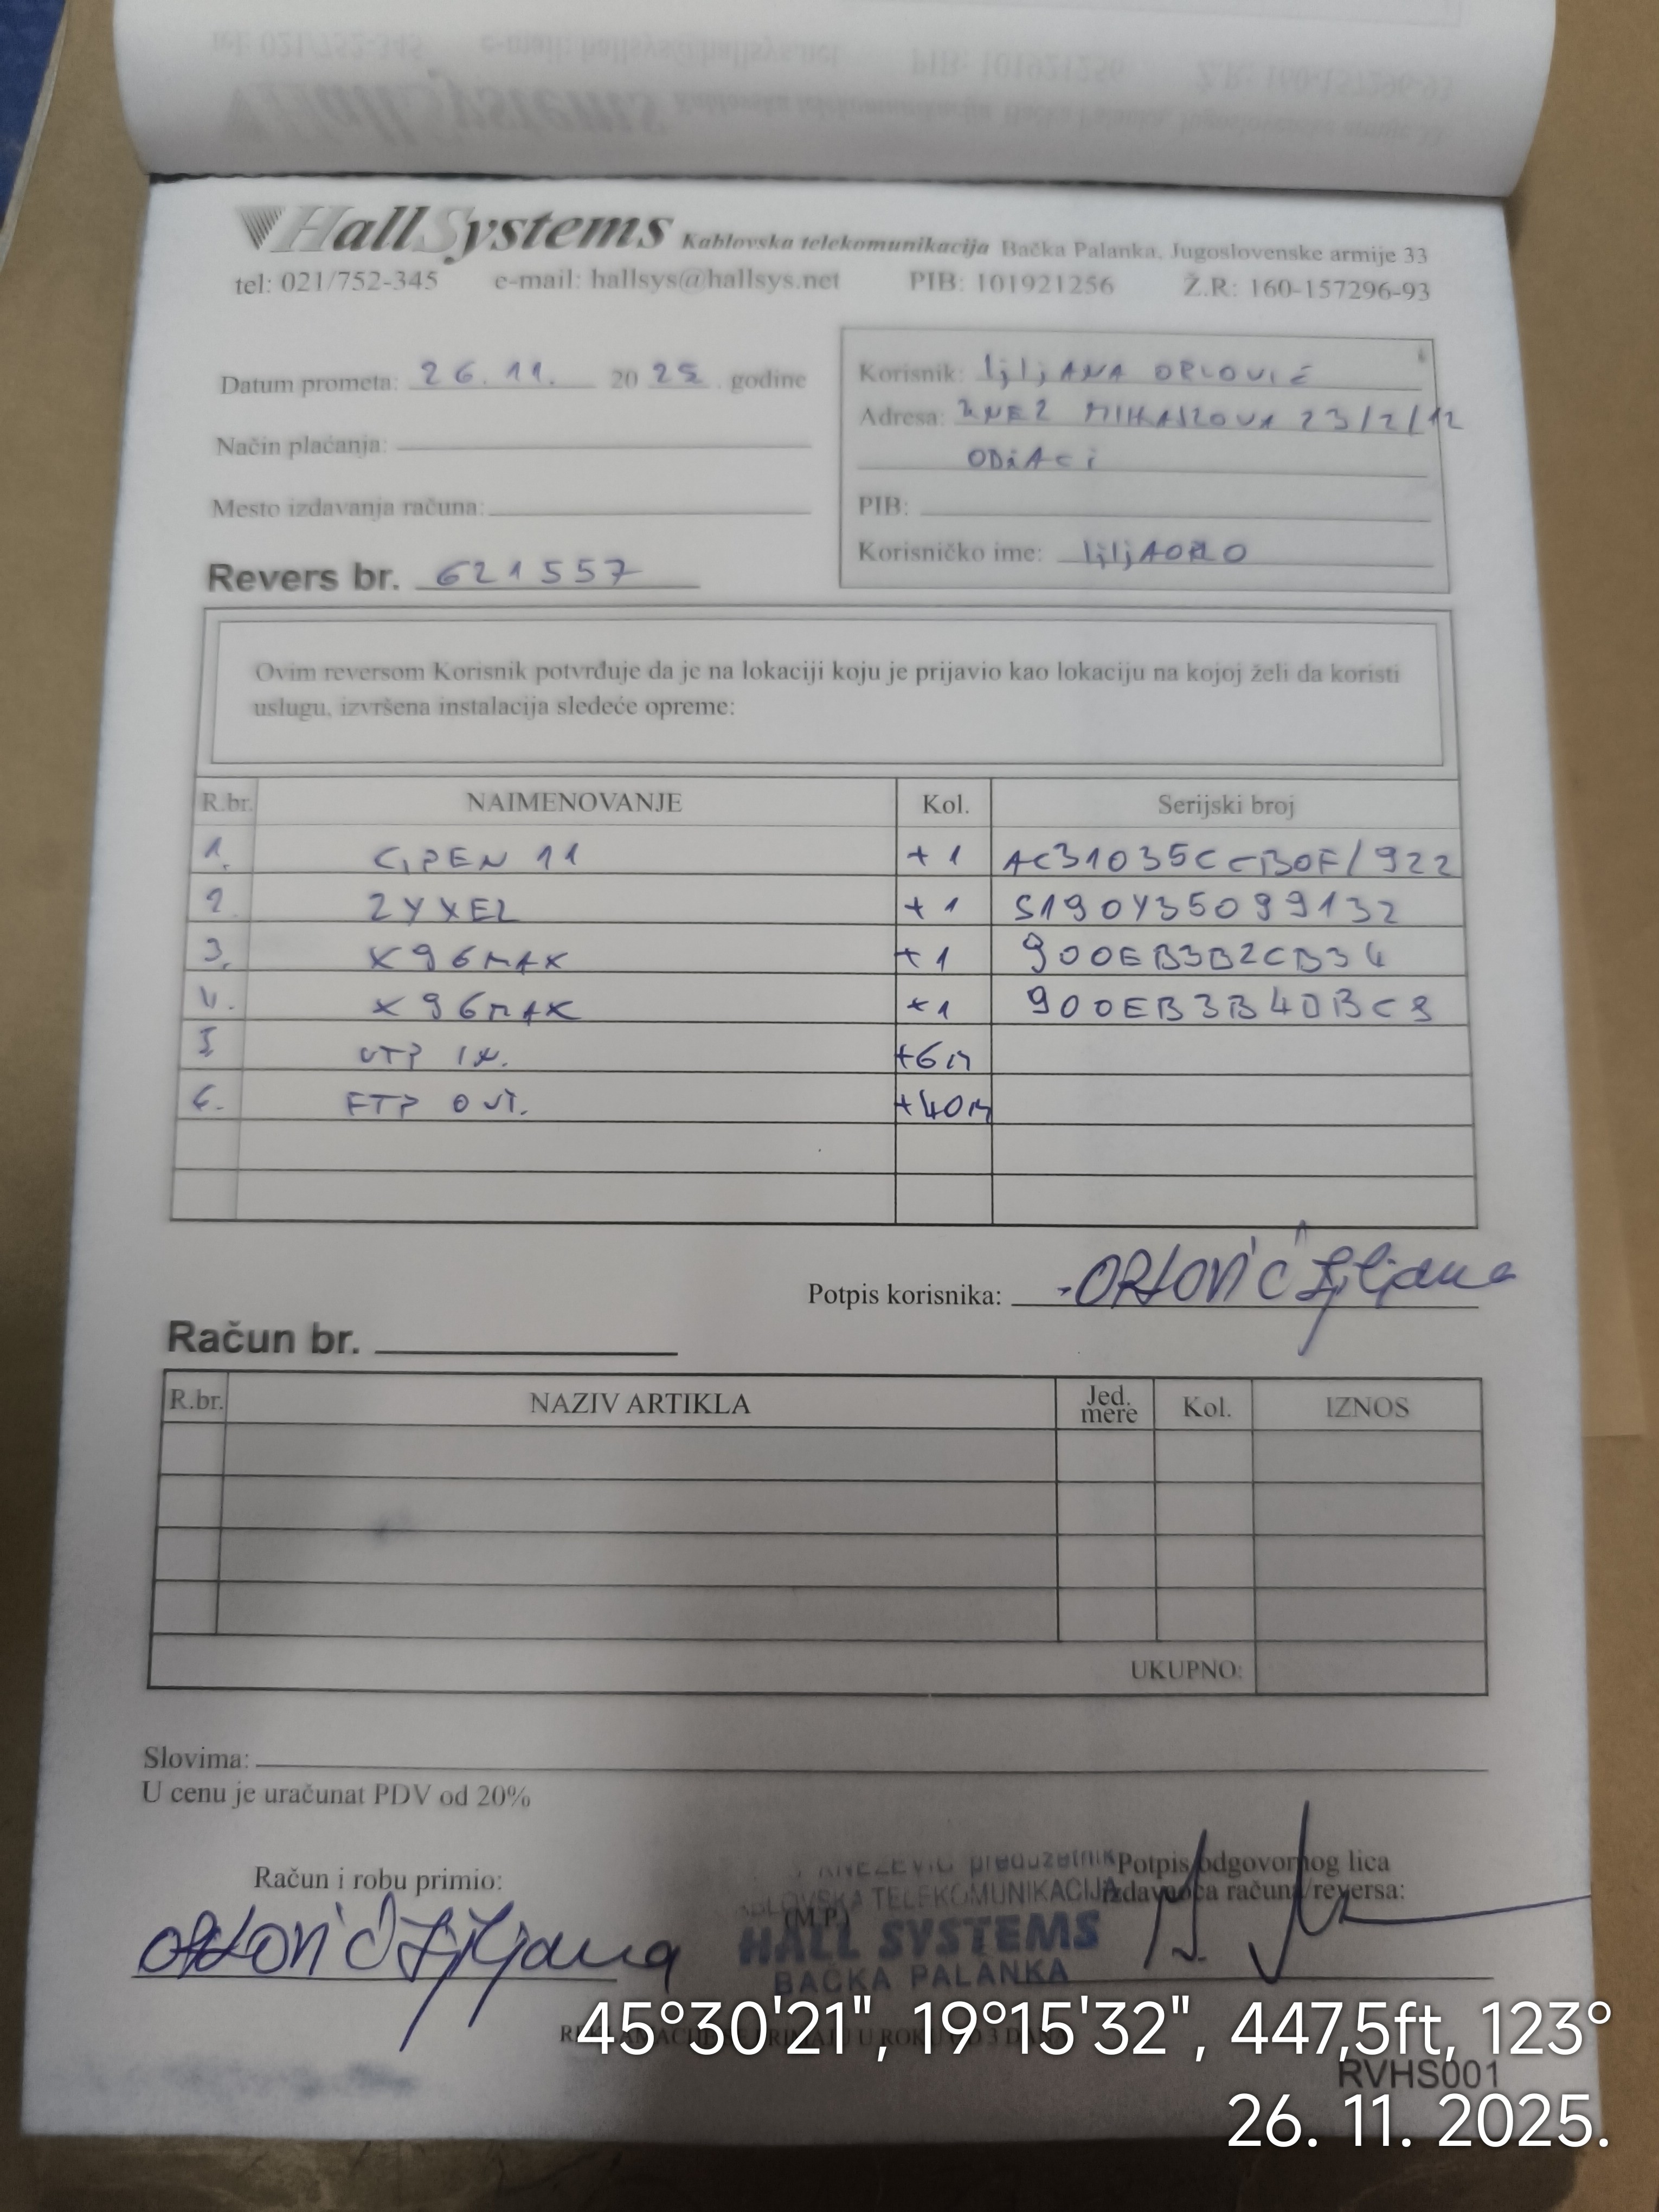 HallSystems Kablovska telekomunikacija Bačka Palanka, Jugoslovenske armije 33
tel: 021/752-345 e-mail: hallsys@hallsys.net PIB: 101921256 Ž.R: 160-157296-93
Datum prometa: 26.11. 2025. godine
Način plaćanja:
Mesto izdavanja računa:
Revers br. 621557
Korisnik: ljljANA ORLOVIĆ
Adresa: KNEZ MIHAJLOVA 23/2/12
ODŽACI
PIB:
Korisničko ime: ljljAORLO
Ovim reversom Korisnik potvrđuje da je na lokaciji koju je prijavio kao lokaciju na kojoj želi da koristi
uslugu, izvršena instalacija sledeće opreme:
R.br. NAIMENOVANJE Kol. Serijski broj
1. GPEN 11 +1 AC31035CCB0F/922
2. ZYXEL +1 S190Y35099132
3. X96MAX +1 900EB3B2CB34
4. X96MAX +1 900EB3B40BC8
5. UTP IN. +6m
6. FTP OUT. +40m
Potpis korisnika: ORLOVIĆ Ljiljana
Račun br.
R.br. NAZIV ARTIKLA Jed. mere Kol. IZNOS
UKUPNO:
Slovima:
U cenu je uračunat PDV od 20%
Račun i robu primio:
ORLOVIĆ Ljiljana
KNEŽEVIĆ preduzetnik
KABLOVSKA TELEKOMUNIKACIJA
(M.P.)
HALL SYSTEMS
BAČKA PALANKA
Potpis odgovornog lica
izdavaoca računa/reversa:
REKLAMACIJE SE PRIMAJU U ROKU OD 3 DANA
RVHS001
45°30'21", 19°15'32", 447,5ft, 123°
26. 11. 2025.